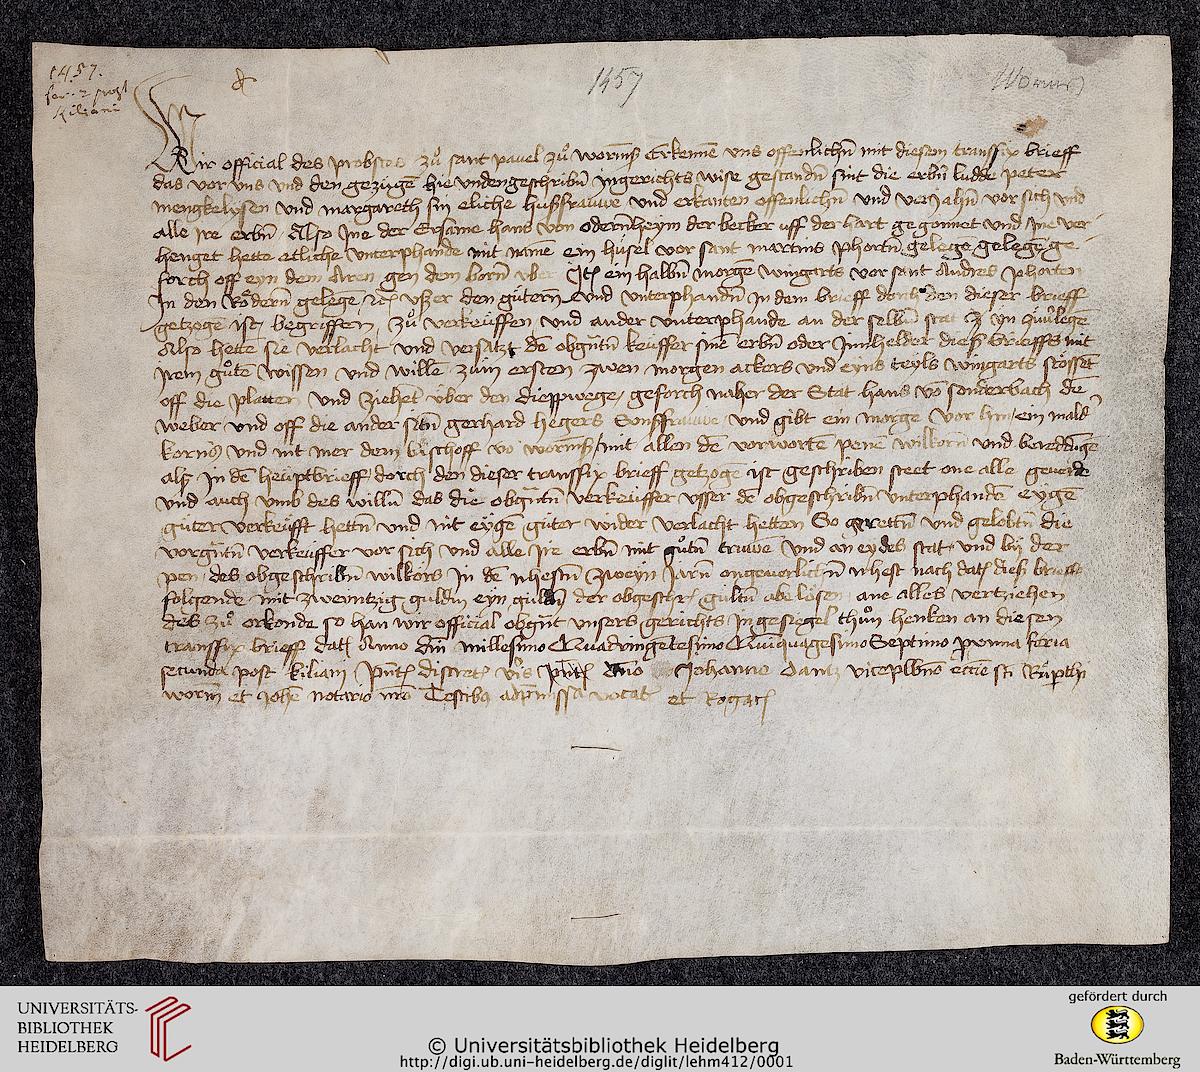 1457.
fer. 2 post
Kiliani
1457
Worms
Wir official des probstes zů sant pauel zů wormß Erkennē vns offenlichn̄ mit diesem transfix brieff
das vor vns vnd den gezugē hie vndengeschribn̄ Ingerichts wise gestandn̄ sint die erbn̄ ludde peter
mengkelysen vnd margareth sin eliche hußfrauwe vnd erkanten offenlichn̄ vnd veriahn̄ vor sich vnd
alle Ire erbn̄ Also Ine der Ersame hans von odernheym der becker vff der hart gegonnet vnd Ine ver-
henget hette etliche vnterphande mit namē ein husel vor sant martins phortn̄ gelege gelege ge-
forch off eyn dem Aren gen dem born̄ vber Itē ein halbn̄ morgē wingarts vor sant Andres phorten
In den Rodern̄ gelege vßer den gütern̄ vnd vnterphandn̄ In dem brieff dorch den dieser brieff
getzogē ist begriffen zů verkeuffen vnd ander vnterphande an der selbn̄ stat
Also hette sie verlacht vnd versatzt dē obgntn̄ keuffer sinē erbn̄ oder Innhelder dieß brieffs mit
Irem gutē wissen vnd willē zům ersten zwen morgen ackers vnd eyns teyls wingarts stossēt
off die platten vnd ziehēt vber den dieppwege geforch naher der Stat hans vō sonderbach dē
weber vnd off die ander sitn̄ gerhard hegers Sonsfrauwe vnd gibt ein morge vor hin ein mald̄
korns vnd nit mer dem byschoff vō wormß mit allen dē vorwortē penē wilkorn̄ vnd bereddūgē
alß In dē heuptbrieff dorch den dieser transfix brieff getzogē ist geschriben steet one alle geuerde
vnd auch vmb des willn̄ das die obgntn̄ verkeuffer vsser dē obgeschribn̄ vnterphandē eygē
güter verkeufft hettn̄ vnd nit eygē güter wider verlacht hetten So gerettn̄ vnd gelobtn̄ die
vorgntn̄ verkeuffer vor sich vnd alle Ire erbn̄ mit gůtn̄ truwē vnd an eydes stat vnd by der
pen des obgeschribn̄ wilkors In dē nhestn̄ zweyn Jarn̄ ongeuerlichn̄ nhest nach dat dieß brieffs
folgende mit zwentzig guldin eyn guldn̄ der obgeschr gultn̄ abelösen ane alles vertziehen
des zů orkonde so han wir official obgnt vnsers gerichts Ingesiegel thůn henken an diesen
transfix brieff dat Anno dn̄i millesimo Quadringētesimo Quinquagesimo Septimo feria
secunda post kiliani pn̄t discret viris Johanne dantz viceplbn̄o eccie sti Ruperti
worm̄ et Johē notario nr̄o Testibus ad pmissa vocat et Rogat
UNIVERSITÄTS-
BIBLIOTHEK
HEIDELBERG
© Universitätsbibliothek Heidelberg
http://digi.ub.uni-heidelberg.de/diglit/lehm412/0001
gefördert durch
Baden-Württemberg